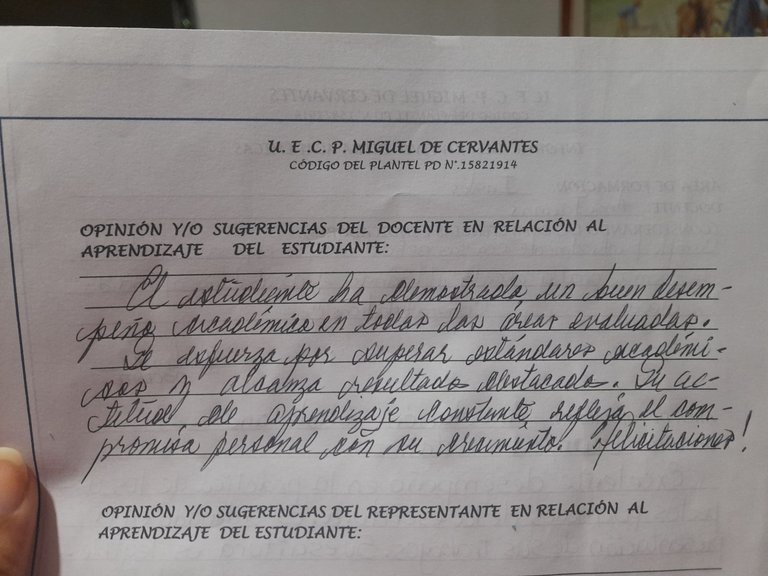 U. E .C. P. MIGUEL DE CERVANTES
CÓDIGO DEL PLANTEL PD Nº.15821914
OPINIÓN Y/O SUGERENCIAS DEL DOCENTE EN RELACIÓN AL
APRENDIZAJE DEL ESTUDIANTE:
El estudiante ha demostrado un buen desem-
peño académico en todas las áreas evaluadas.
Se esfuerza por superar estándares académi-
cos y alcanza resultados destacados. Su ac-
titud de aprendizaje constante refleja el com-
promiso personal con su crecimiento. Felicitaciones!
OPINIÓN Y/O SUGERENCIAS DEL REPRESENTANTE EN RELACIÓN AL
APRENDIZAJE DEL ESTUDIANTE: